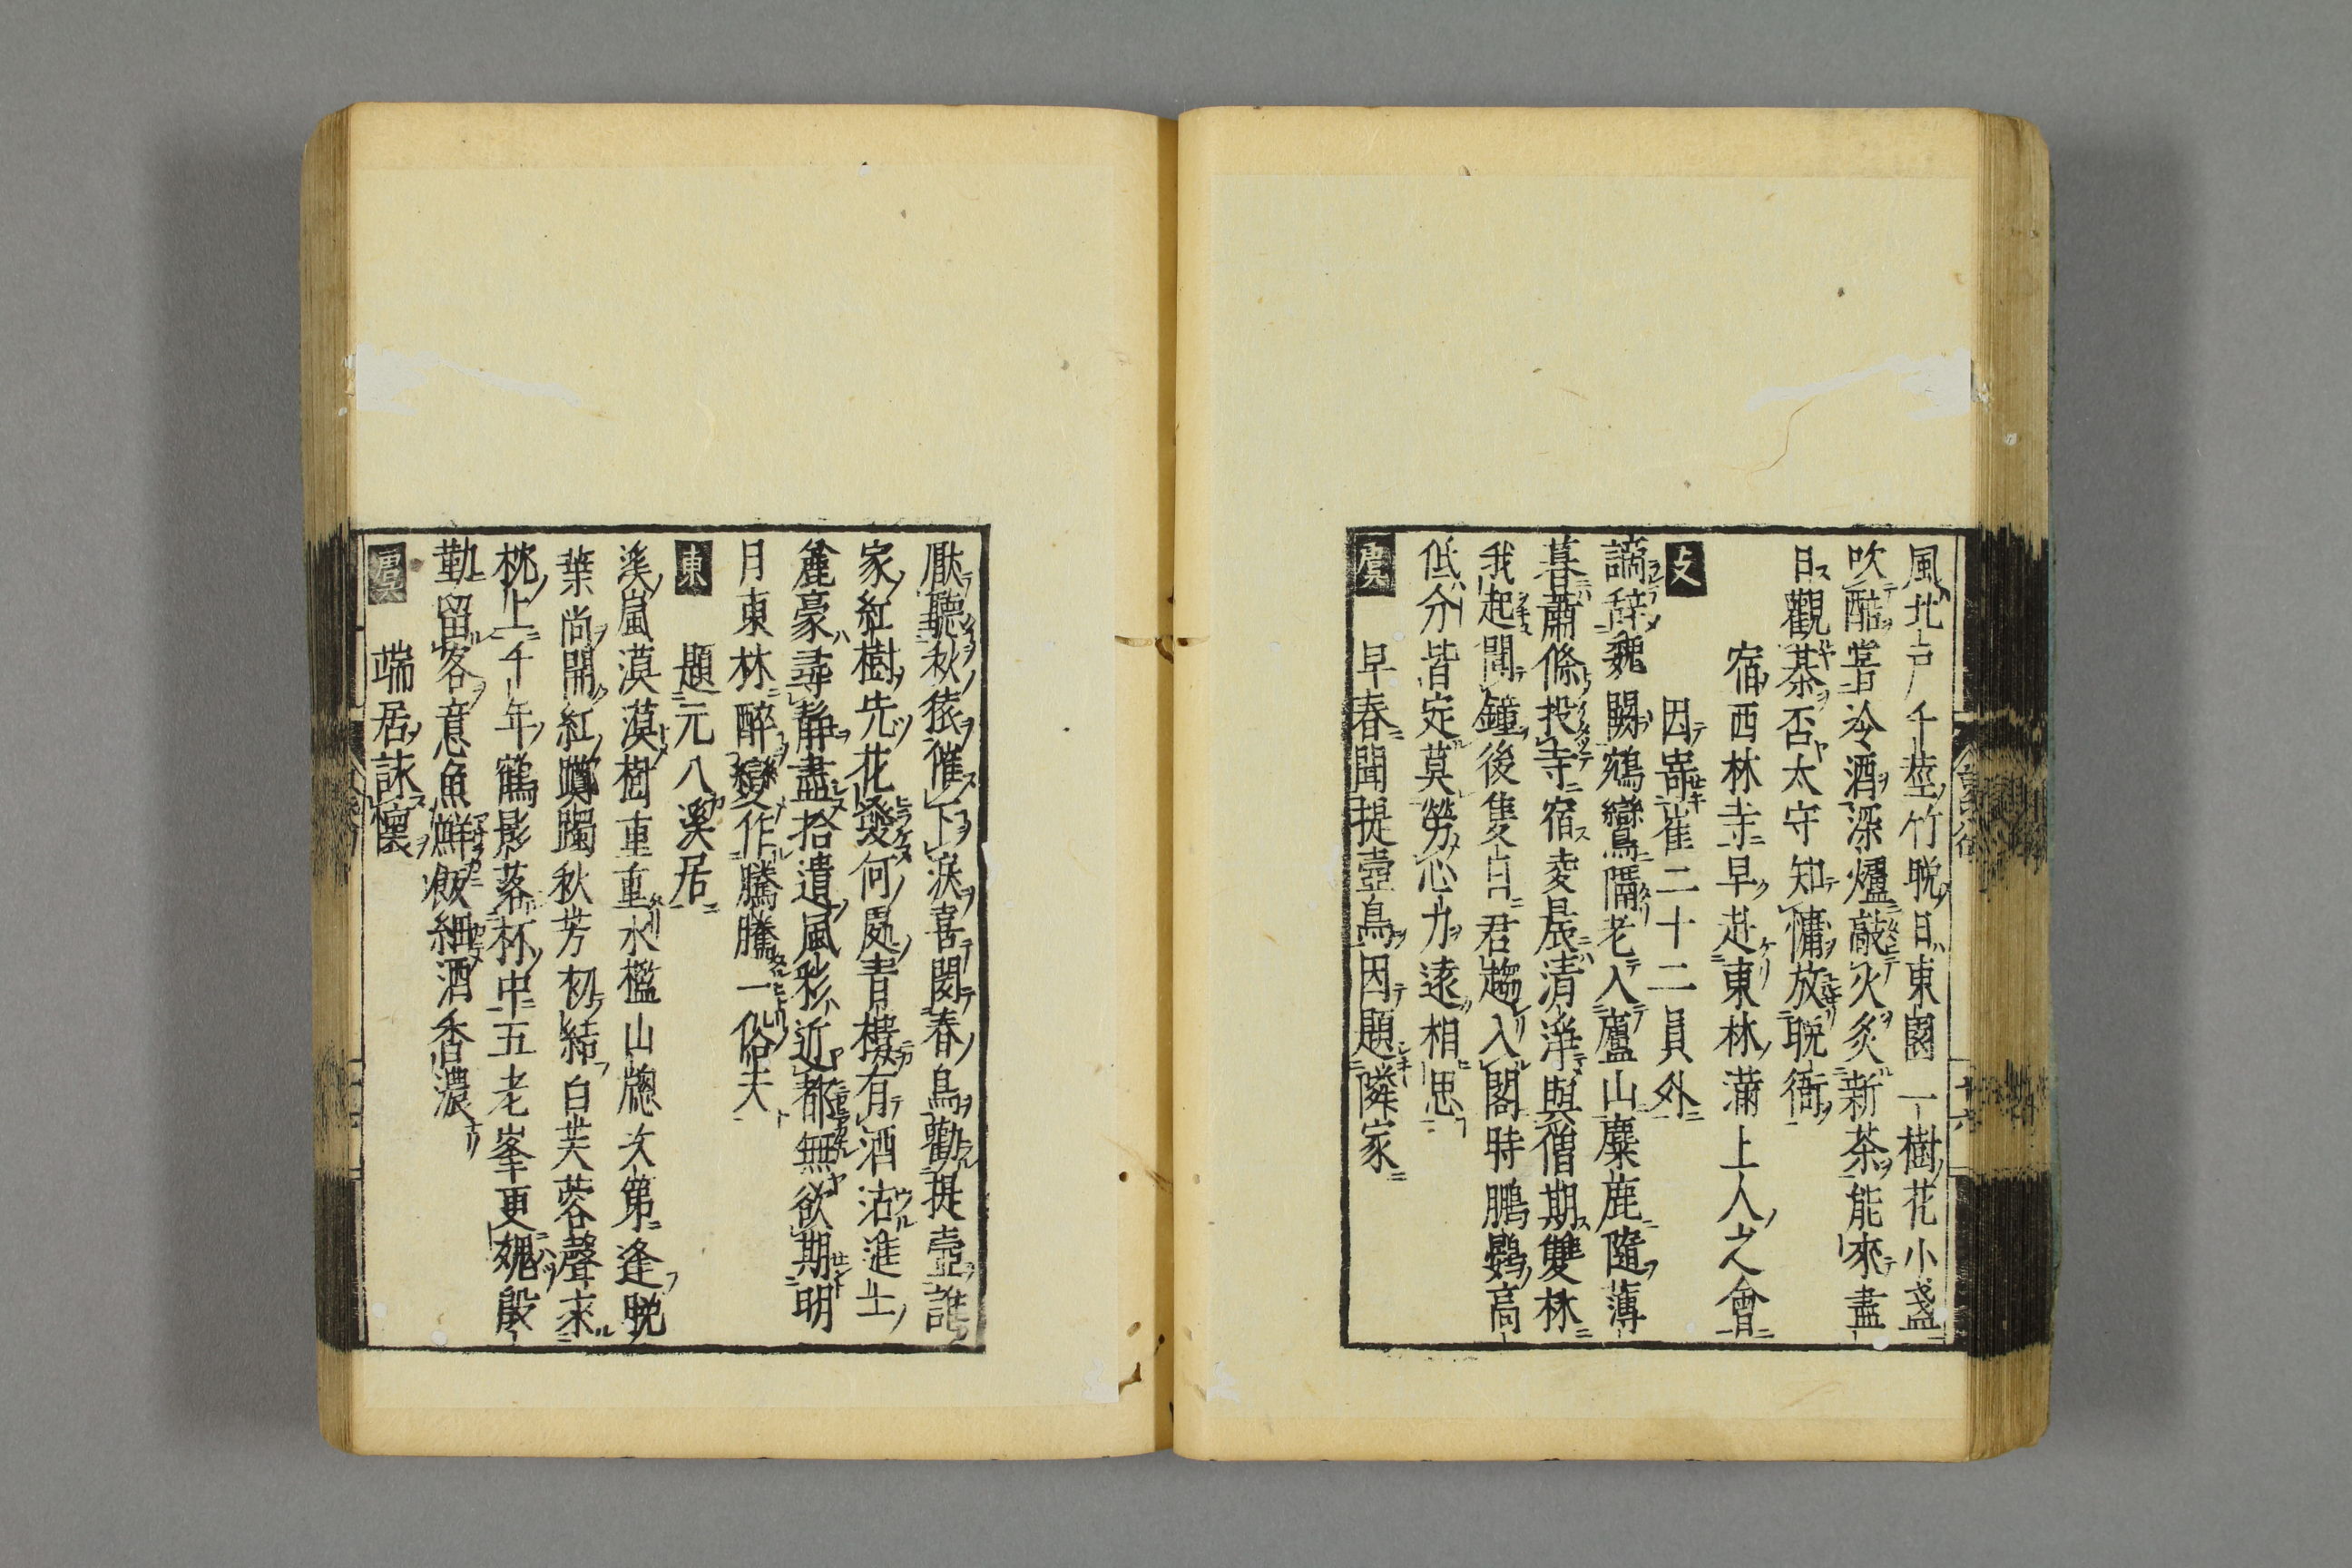 風北戸千莖竹晚日東園一樹花小盞
吹醅嘗冷酒深爐敲火炙新茶能來盡
日觀棊否太守知慵放晚衙
宿西林寺早赴東林滿上人之會
因寄崔二十二員外
文
謫辭魏闕鵷鸞隔老入廬山麋鹿隨薄
暮蕭條投寺宿凌晨清淨與僧期雙林
我起聞鐘後隻日君趨入閣時鵬鷃高
低分皆定莫勞心力遠相思
虞 早春聞提壺鳥因題隣家
厭聽秋猿催下淚喜聞春鳥勸提壺誰
家紅樹先花發何處青樓有酒沽進士
麄豪尋靜盡拾遺風彩近都無欲期明
月東林醉變作騰騰一俗夫
東 題元八溪居
溪嵐漠漠樹重重水檻山牕次第逢晚
葉尚開紅躑躅秋芳初結白芙蓉聲來
枕上千年鶴影落杯中五老峯更媿殷
勤留客意魚鮮飯細酒香濃
虞 端居詠懷